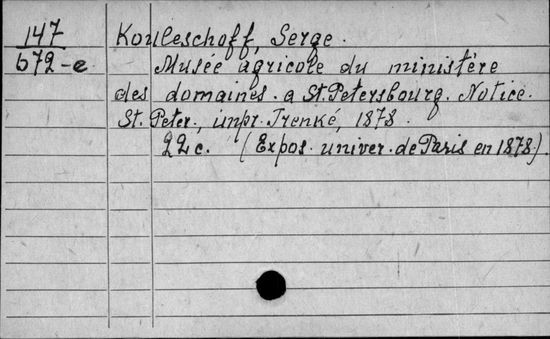 147
672-e
Kouleschoff, Serge.
Musée agricole du ministère
des domaines. a St. Petersbourg. Notice.
St. Peter., impr. Trenké, 1878.
22 c. (Expos. univer. de Paris en 1878.)